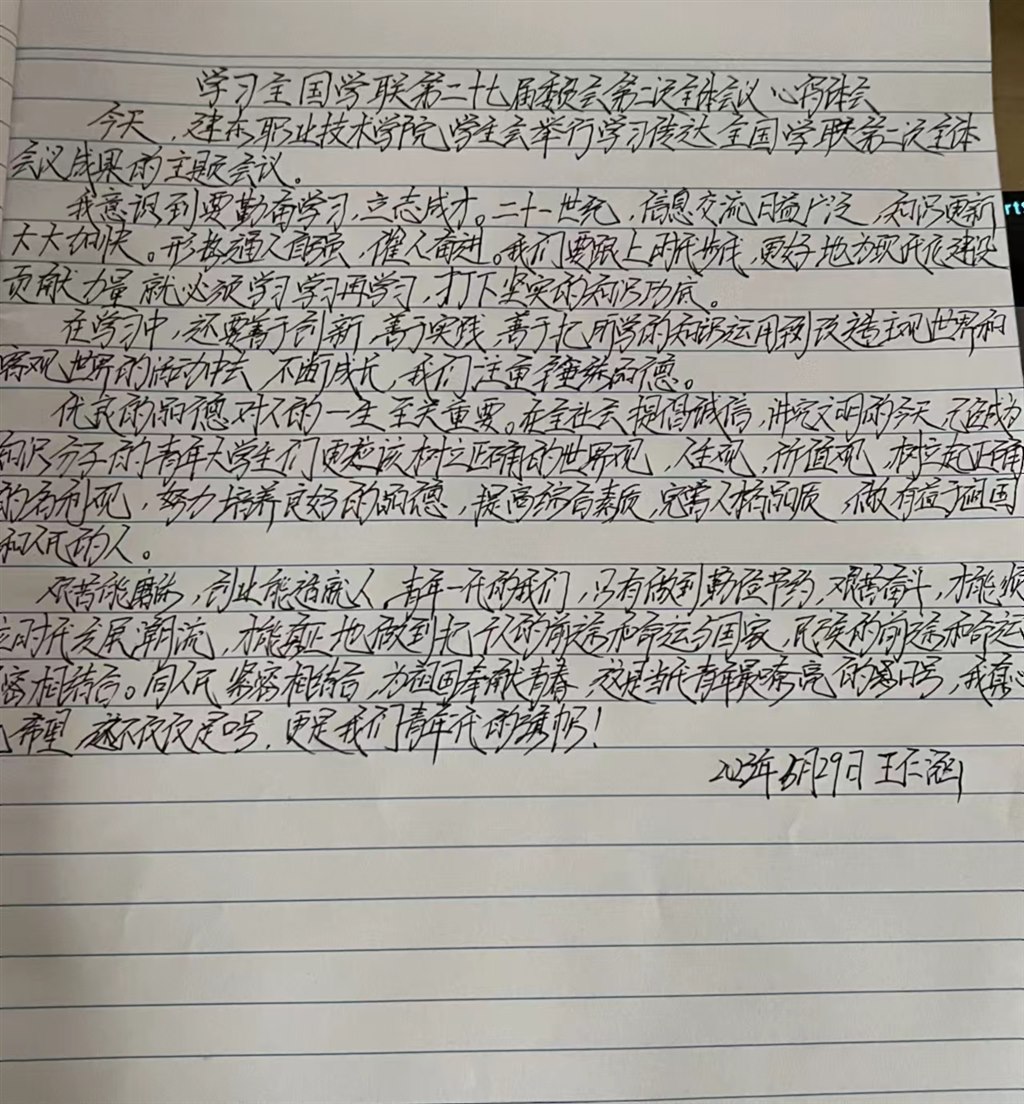 学习全国学联第二十七届委员会第二次全体会议心得体会
今天，建东职业技术学院学生会举行学习传达全国学联第二次全体
会议成果的主题会议。
我意识到要勤奋学习，立志成才。二十一世纪，信息交流日益广泛，知识更新
大大加快。形势逼人自强，催人奋进。我们要跟上时代步伐，更好地为现代化建设
贡献力量 就必须学习学习再学习，打下坚实的知识功底。
在学习中，还要善于创新 善于实践 善于把所学的知识运用到改造主观世界和
客观世界的活动中去 不断成长，我们注重锤炼品德。
优良的品德对人的一生至关重要。在全社会提倡诚信，讲究文明的今天，
知识分子的青年大学生们更应该树立正确的世界观，人生观，价值观，树立起正确
的名利观，努力培养良好的品德，提高综合素质，完善人格品质，做有益于祖国
和人民的人。
艰苦能磨炼人，创业能造就人。青年一代的我们，只有做到勤俭节约，艰苦奋斗，才能顺
应时代发展潮流，才能真正地做到把个人的前途和命运与国家，民族的前途和命运
紧密相结合。同人民紧密相结合，为祖国奉献青春，这是当代青年最嘹亮的口号，我真心
希望 这不仅仅是口号，更是我们青年一代的
2023年5月29日 王仁涵